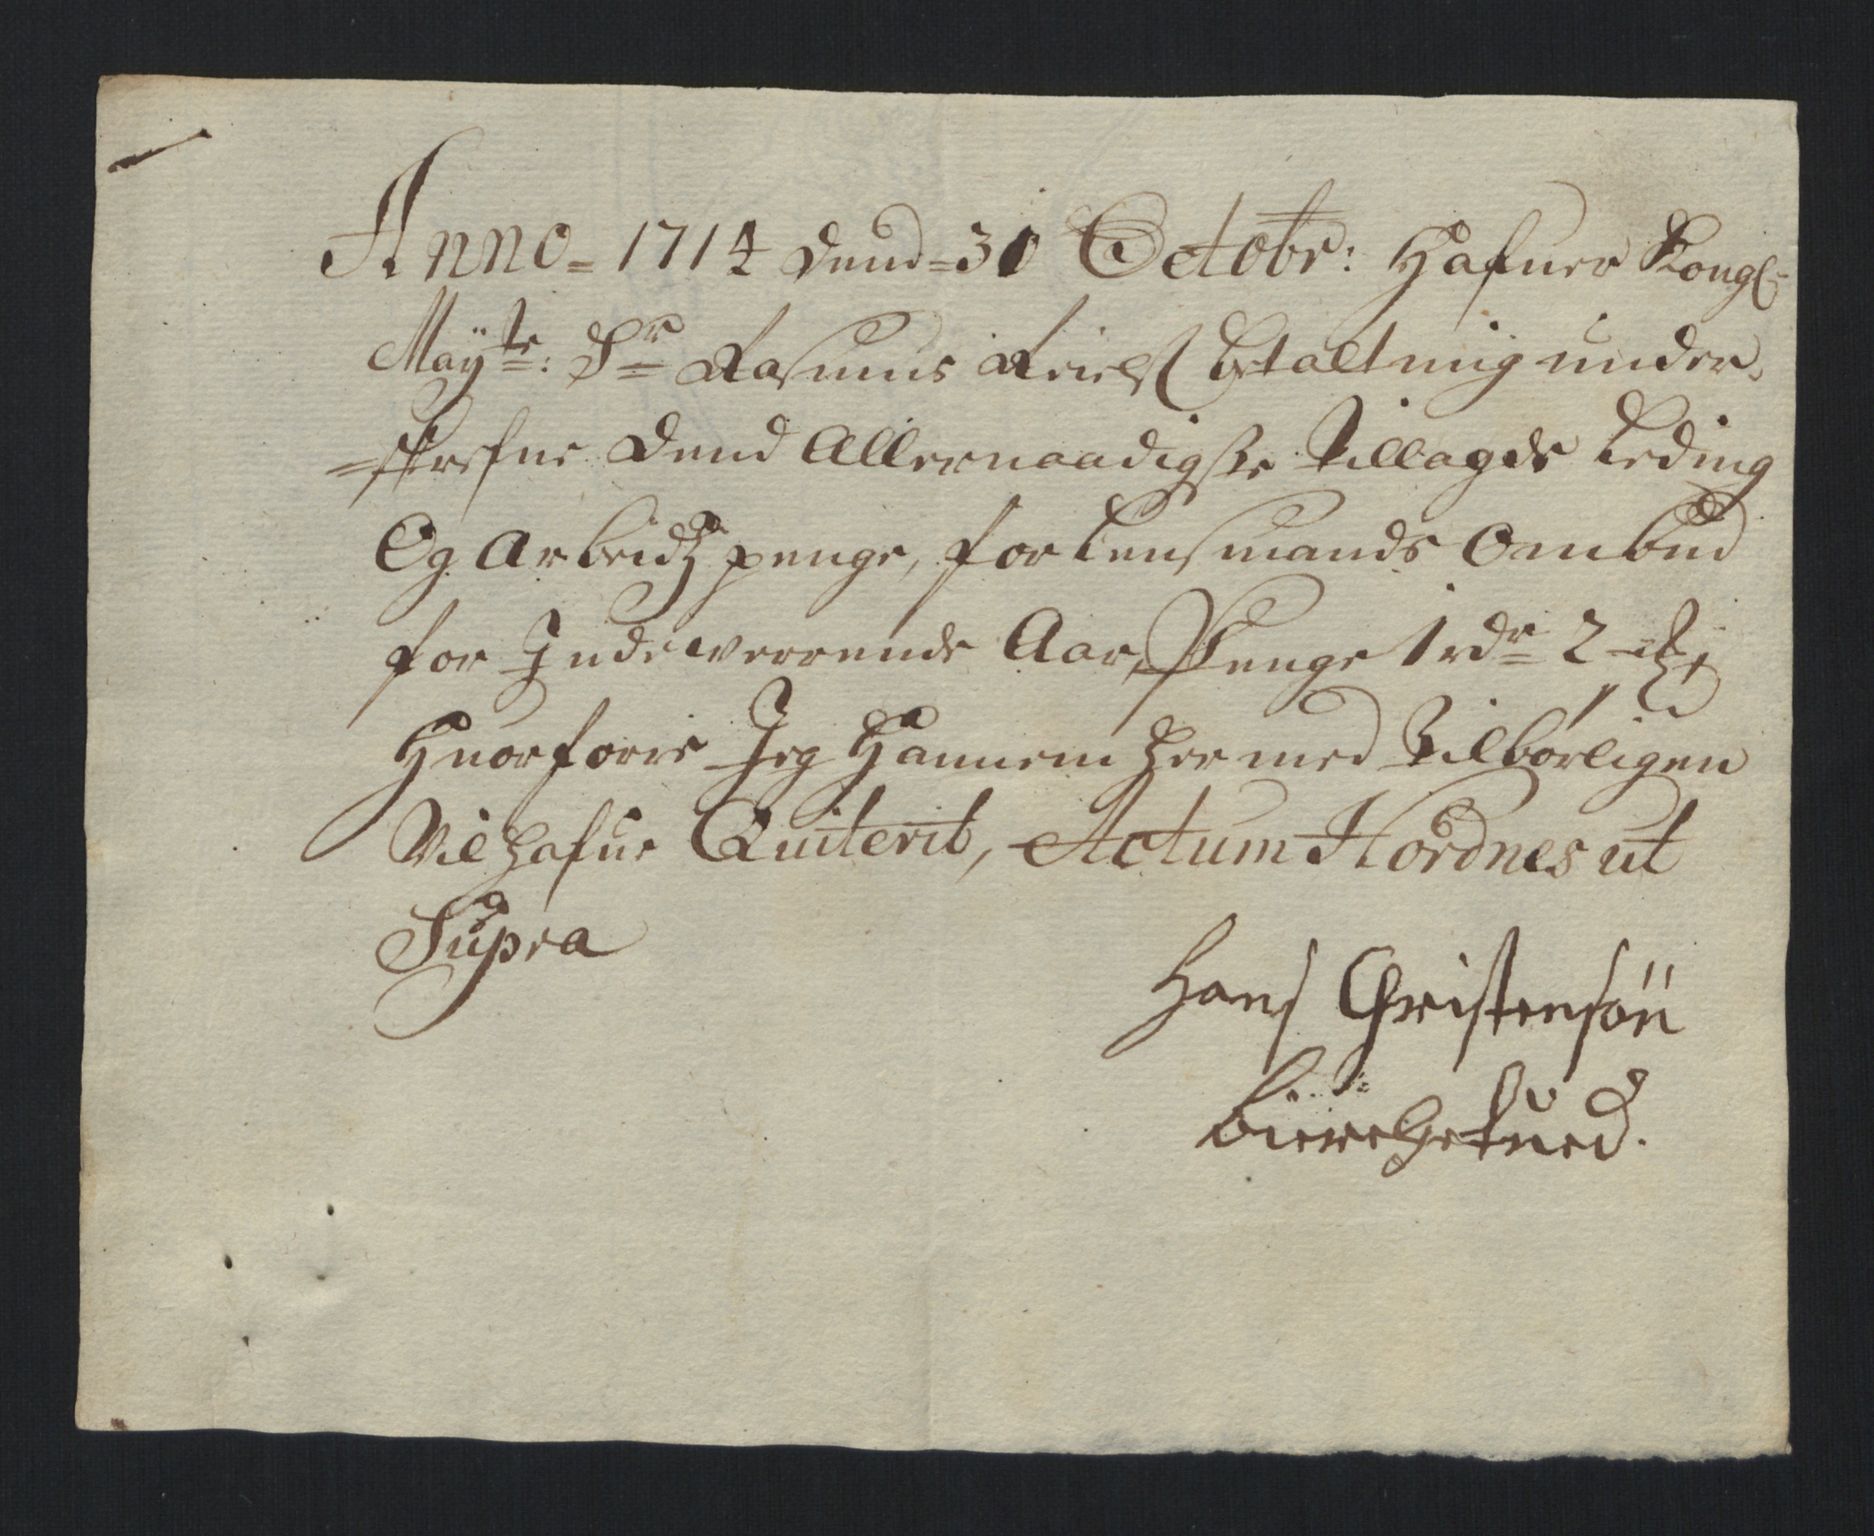 Anno = 1714 dend = 30 Octobr: Hafuer Kongl:
Mayte: Sr Rasmus betalt mig under,
=skrefne dend Allernaadigste Tillagde Leding
Og Arbeidtz penge, for Lensmands Ombud
for Indewerrende Aar, Penge 1 rdr 2
Huorforre Jeg Hannem her med Tilbørligen
Vil hafue Quiterit, Actum Nordnes ut
Supra
Hans Christensøn